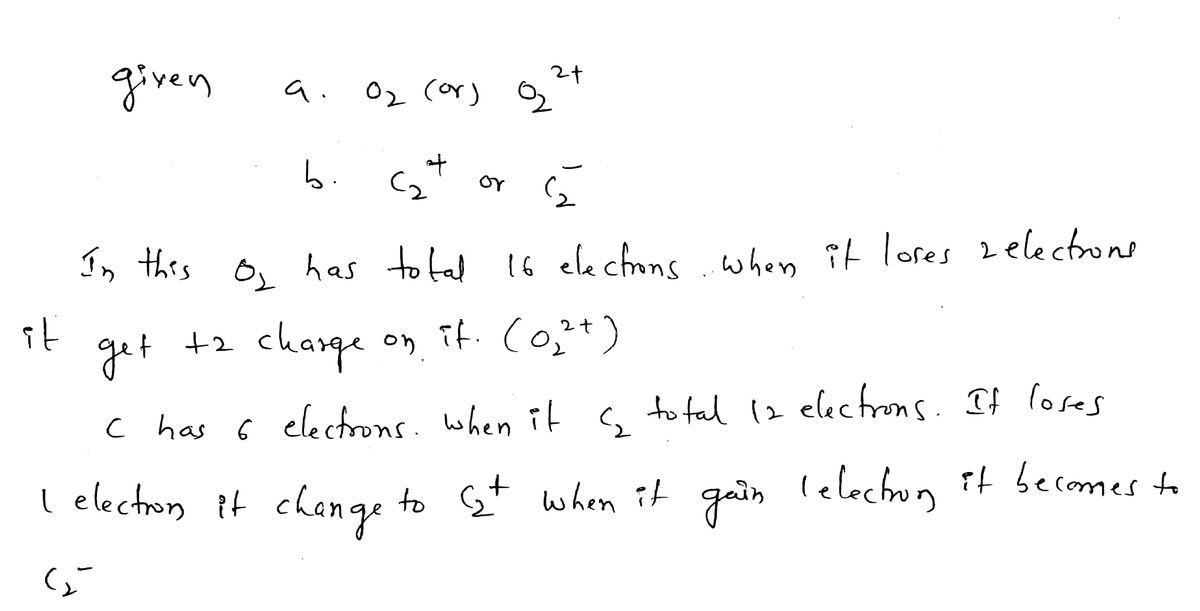 given a. O₂ (or) O₂²⁺
b. C₂⁺ or C₂⁻
In this O₂ has total 16 electrons. when it loses 2 electrons
it get +2 charge on it. (O₂²⁺)
C has 6 electrons. when it C₂ total 12 electrons. It loses
1 electron it change to C₂⁺ when it gain 1 electron it becomes to
C₂⁻